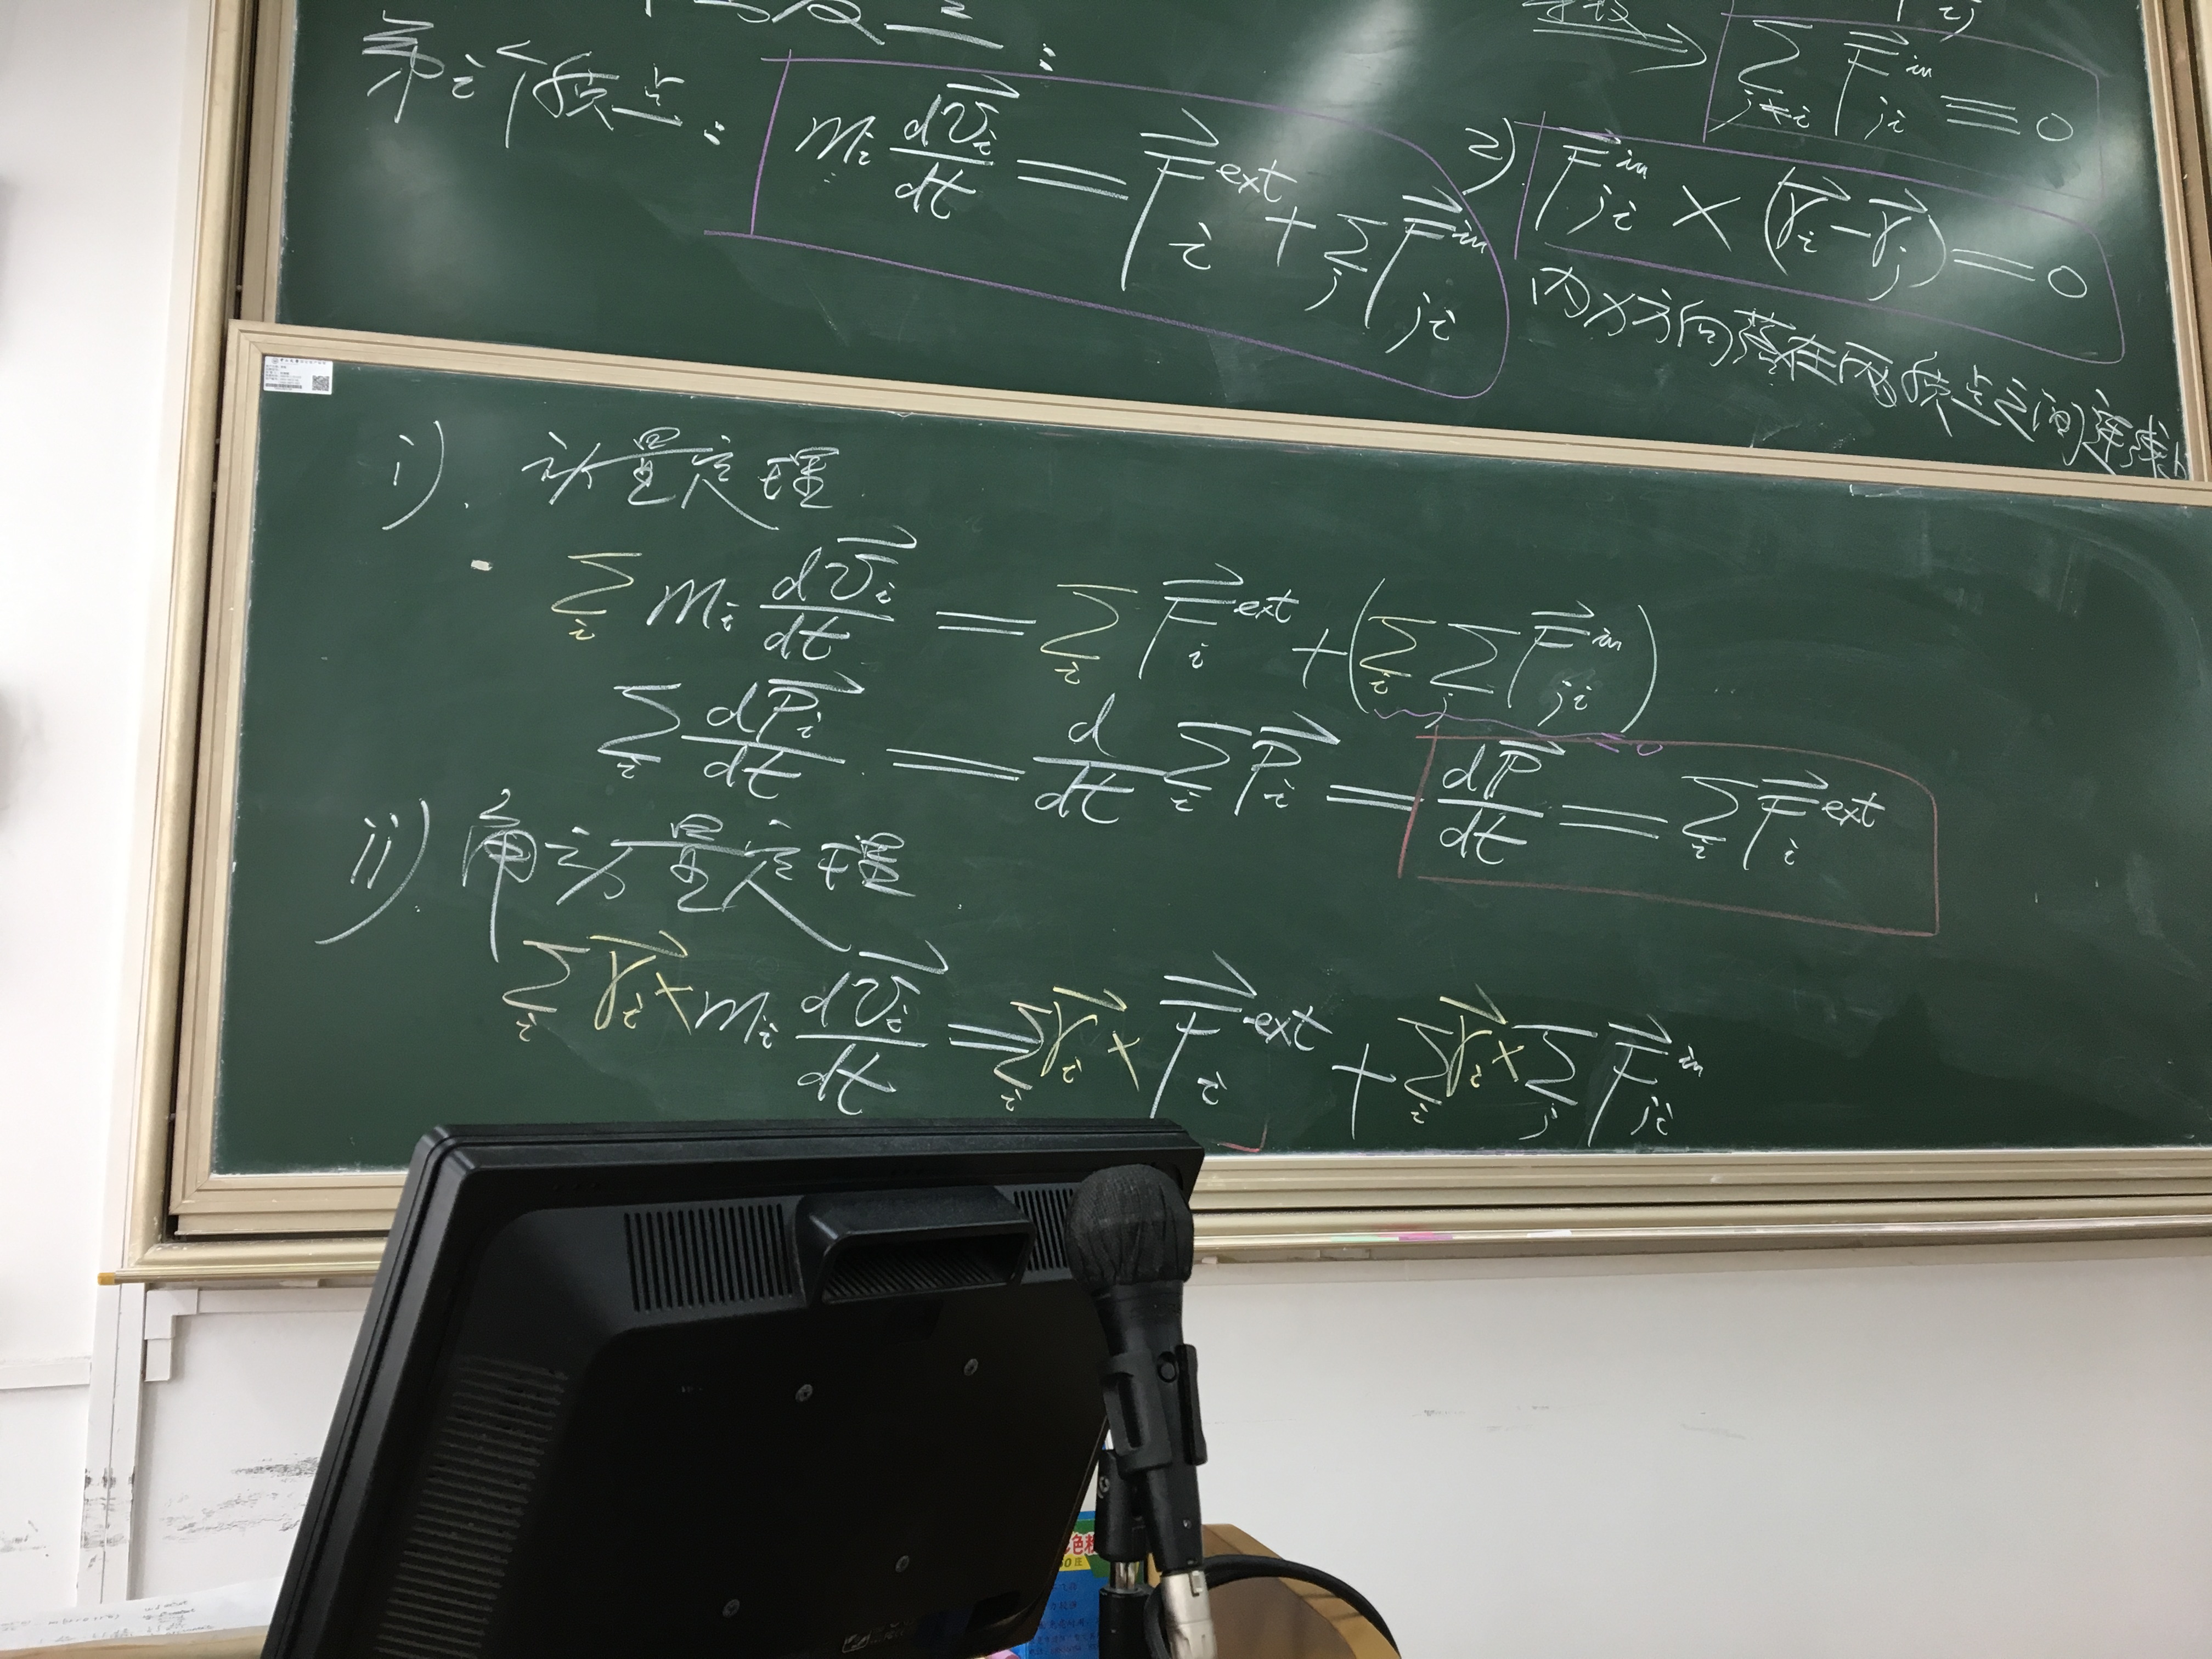 第i个质点：
m_i dv⃗_i/dt = F⃗_i^ext + Σ_j F⃗_ji^in
Σ_{j≠i} F⃗_ji^in ≡ 0
2) F⃗_ji^in × (r⃗_i − r⃗_j) = 0
内力方向落在两质点之间连线
i). 动量定理
Σ_i m_i dv⃗_i/dt = Σ_i F⃗_i^ext + (Σ_i Σ_j F⃗_ji^in)
= 0
Σ_i dP⃗_i/dt = d/dt Σ_i P⃗_i = dP⃗/dt = Σ_i F⃗_i^ext
ii). 角动量定理
Σ_i r⃗_i × m_i dv⃗_i/dt = Σ_i r⃗_i × F⃗_i^ext + Σ_i r⃗_i × Σ_j F⃗_ji^in